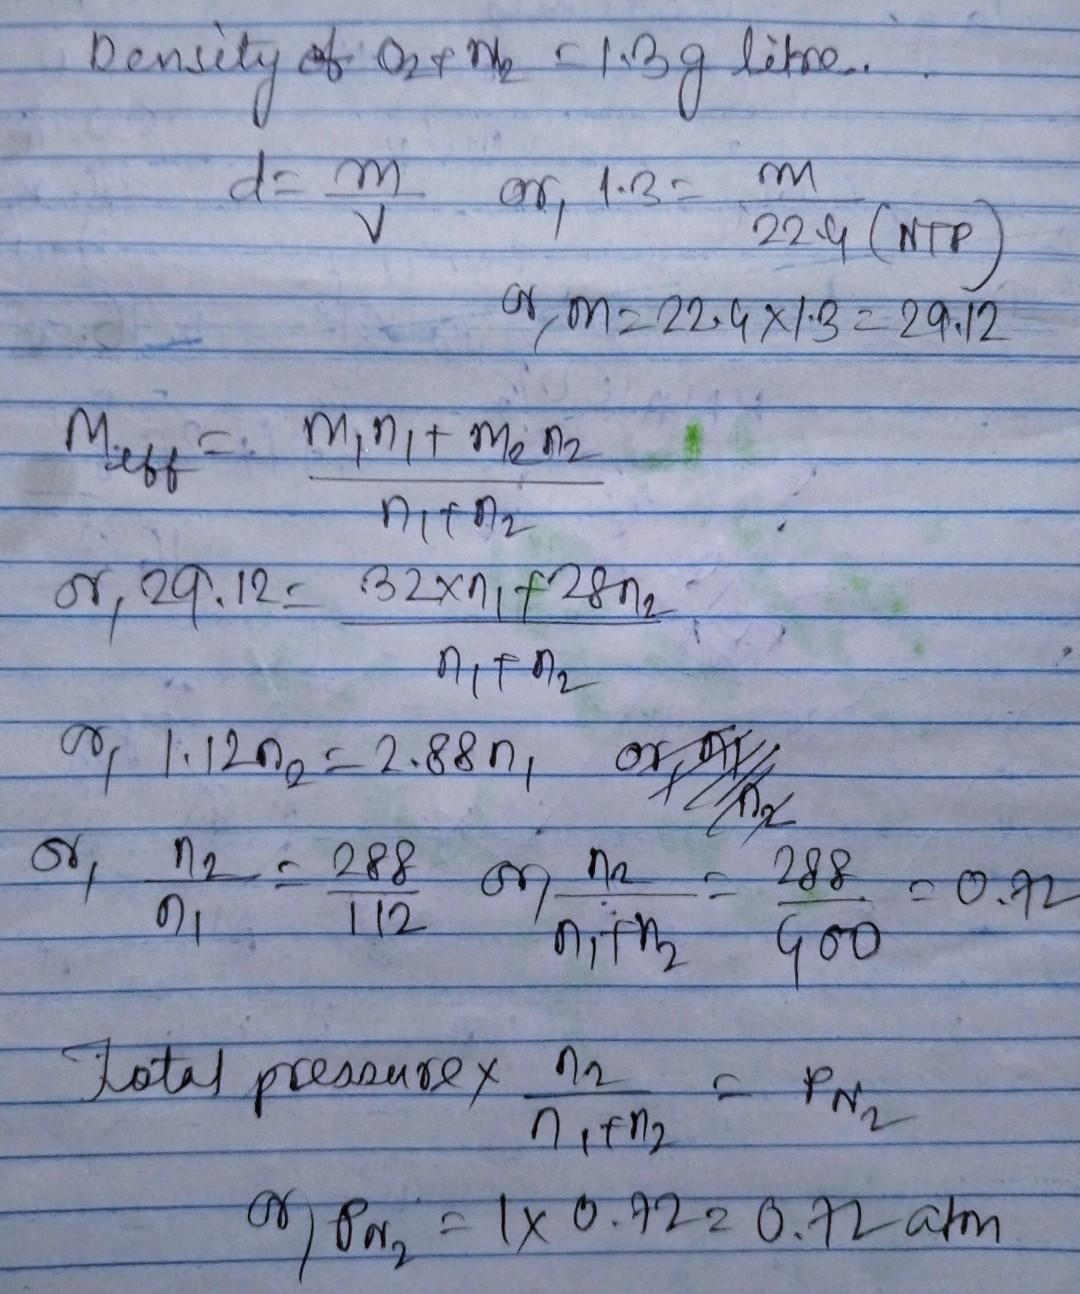 Density of O₂ + N₂ = 1.3 g litre.
d = m/V or, 1.3 = m/22.4 (NTP)
or, m = 22.4 × 1.3 = 29.12
M_eff = (m₁n₁ + m₂n₂)/(n₁ + n₂)
or, 29.12 = (32×n₁ + 28n₂)/(n₁ + n₂)
or, 1.12n₂ = 2.88n₁ or, n₁/n₂
or, n₂/n₁ = 288/112 or, n₂/(n₁+n₂) = 288/400 = 0.72
Total pressure × n₂/(n₁+n₂) = P_N₂
or, P_N₂ = 1 × 0.72 = 0.72 atm